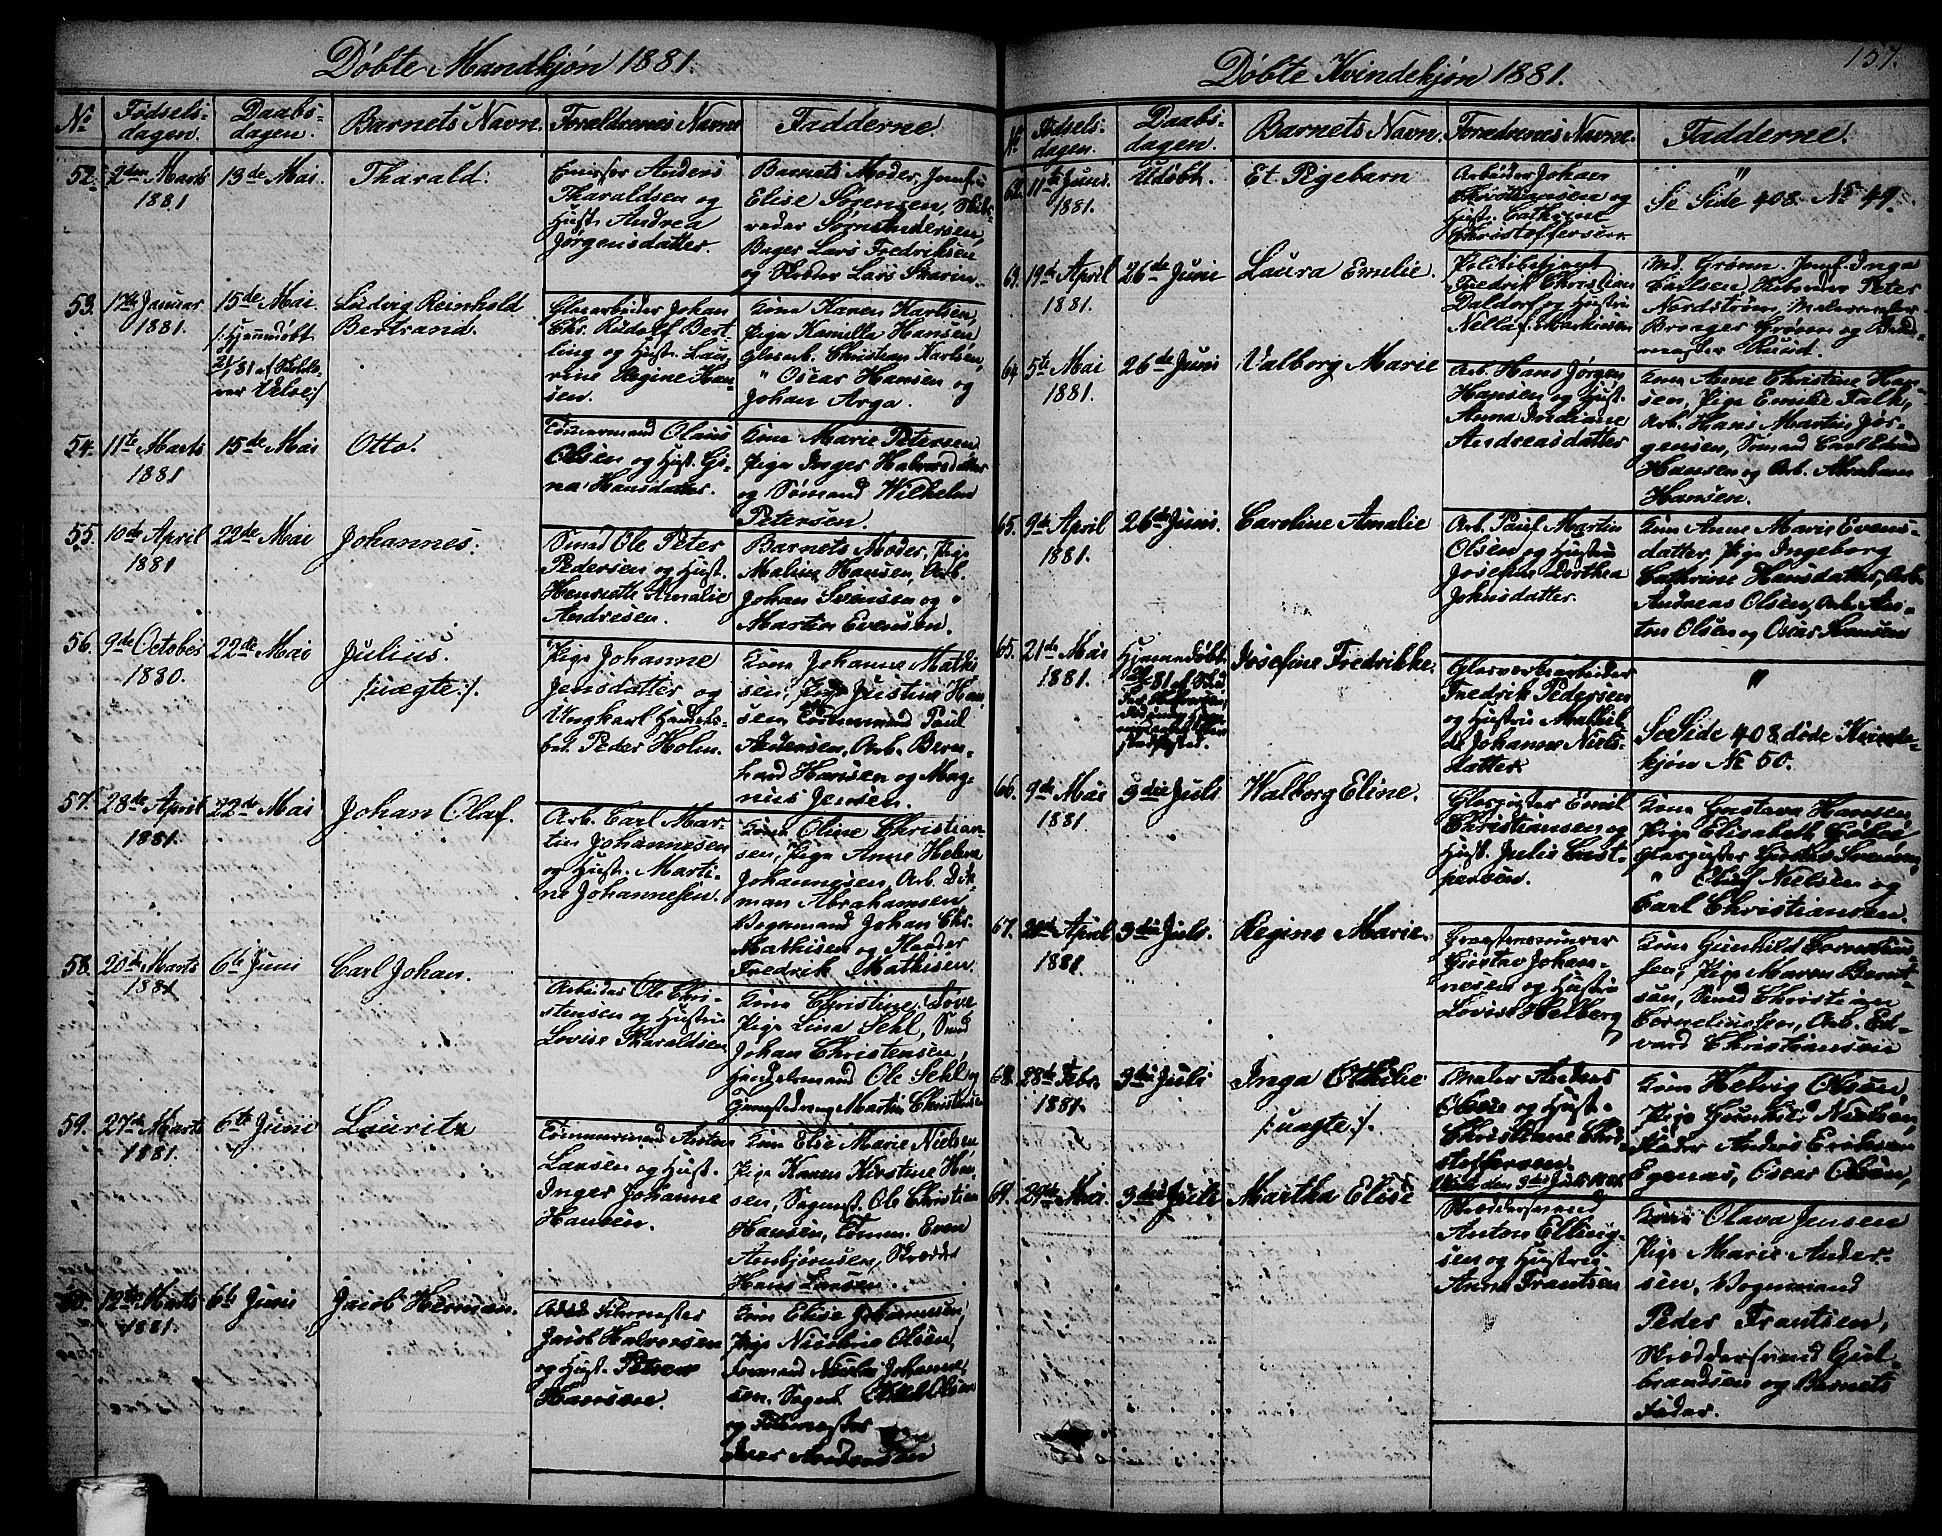 Døbte Mandkjøn 1881.
No
Fødsels-
dagen.
Daabs-
dagen.
Barnets Navn.
Forældrenes Navne
Fadderne.
52.
2den Marts
1881
13de Mai.
Tharald.
Anders
Tharaldsen og
Hust. Andrea
Jørgensdatter.
Barnets Moder, Jomfru
Elise Sørensen,
Bager Lars Fredriksen
og Lars
53.
17de Januar
1881.
15de Mai.
/:Hjemmedøbt
Ludvig Reinhold
Bertrand.
Glasarbeider Johan
Chr. Rudolf Bert
ling og Hust. Lau-
rine Regine Han-
sen.
Kone Karen Karlsen,
Pige Kamilla Hansen,
Glasarb. Christian Karlsen,
" Oscar Hansen og
Johan Arga.
54.
11te Marts
1881
15de Mai
Otto.
Tømmermand Olaus
Olsen og Hust. Gi-
na Hansdatter.
Kone Marie Petersen
Pige Inger Halvorsdatter
og Sømand Wilhelm
Petersen.
55.
10de April
1881
22de Mai
Johannes.
Smed Ole Peter
Pedersen og Hust.
Henriette Amalie
Andresen.
Barnets Moder, Pige
Maline Hansen, Arb.
Johan Svensen og
Martin Evensen.
56.
9de October
1880.
22de Mai
Julius.
/:uægte:/.
Pige Johanne
Jensdatter og
Ungkarl Handels-
bet. Peder Holm.
Kone Johanne Mathi
sen, Pige Justine Han-
sen, Tømmermand Paul
Andersen, Arb. Bern-
hard Hansen og Mag-
nus Jensen.
57.
28de April
1881.
22de Mai
Johan Olaf.
Arb. Carl Mar-
tin Johannesen
og Hust. Marti-
ne Johannesen.
Kone Oline Christian-
sen, Pige Anne Helene
Johannesen, Arb.
Abrahamsen
Vognmand Johan Chr.
Mathisen og
Fredrik Mathisen.
58.
20de Marts
1881
6te Juni
Carl Johan.
Arbeider Ole Chri-
stensen og Hustru
Lovise Tharaldsen
Kone Christine Løve
Pige Lina Sehl, Smed
Johan Christensen,
Handelsmand Ole Sehl og
Martin Christensen
59.
27de Marts
1881.
6te Juni
Lauritz
Tømmermand Anton
Larsen og Hust.
Inger Johanne
Hansen.
Kone Elise Marie Nielsen,
Pige Karen Kirstine Han-
sen, Sagmst. Ole Christian
Hansen, Tømm. Even
Arnbjørnsen, Skrædder
Hans Larsen.
60.
12te Marts
1881.
6te Juni
Jacob Herman.
Jacob Halvorsen
og Hust. Petrea
Hansen.
Kone Elise Johannesen,
Pige Nicoline Olsen,
Johanne-
sen,
og
Iver
Døbte Kvindekjøn 1881.
157.
No
Fødsels-
dagen.
Daabs-
dagen.
Barnets Navn.
Forældrenes Navne.
Fadderne.
62.
11te Juni
1881.
Udøbt.
Et Pigebarn
Arbeider Johan
Christiansen og
Hust. Cathrine
Christoffersen.
"
Se Side 408. No 49.
63.
19de April
1881.
26de Juni
Laura Emelie.
Politibetjent
Fredrik Christian
Daldorf og Hustru
Nella f. Markusen
Md. Grønn, Jomf. Inga
Carlsen, Peter
Nordstrøm, Malermester
Ruud.
64.
5te Mai
1881.
26de Juni
Valborg Marie
Arb. Hans Jørgen
Hansen og Hust.
Anna Jordiane
Andreasdatter
Kone Anne Christine Han-
sen, Pige Emilie Falk,
Arb. Hans Martin Jør-
gensen, Sømand Carl Edvard
Hansen og Arb. Abraham
Hansen.
65.
9de April
1881.
26de Juni.
Caroline Amalie
Arb. Paul Martin
Olsen og Hustru
Josefine Dorthea
Johnsdatter.
Kone Anne Marie Evens-
datter, Pige Ingeborg
Cathrine Hansdatter, Arb.
Andreas Olsen, Arb. An-
ton Olsen og Oscar
65.
21de Mai
1881.
Hjemmedøbt
Josefine Fredrikke.
Glasværksarbeider
Fredrik Pedersen
og Hustru Mathil-
de Johanne Niels-
datter.
"
Se Side 408 døde Kvinde-
kjøn No 50.
66.
9de Mai
1881.
3die Juli
Walborg Eline.
Glaspuster Emil
Christiansen og
Hust. Julie Cast-
persen.
Kone Gustava Hansen,
Pige Elisabeth
Glaspuster
" Oluf Nielsen og
Carl Christiansen.
67.
April
1881.
3die Juli.
Regine Marie.
Gustav Johan-
nesen og Hustru
Lovise Helberg
Kone Gunhild
sen, Pige Maren Bernt-
sen, Smed Christian
Corneliussen, Arb. Ed-
vard Christiansen
68.
28de Febr.
1881.
3die Juli
Inga Othilie
/:uægte:/.
Maler Anders
Olsen og Hust.
Christiane Chri-
stoffersen.
Kone Helvig Olsen,
Anders
Oscar Olsen,
69.
29de Mai.
3die Juli
Martha Elise
Skræddersvend
Anton Elling-
sen og Hustru
Anna Frantsen
Kone Olava Jensen
Pige Marie Ander-
sen, Vognmand
Peder Frantsen,
Skræddersvend Gul-
brandsen og Barnets
Fader.